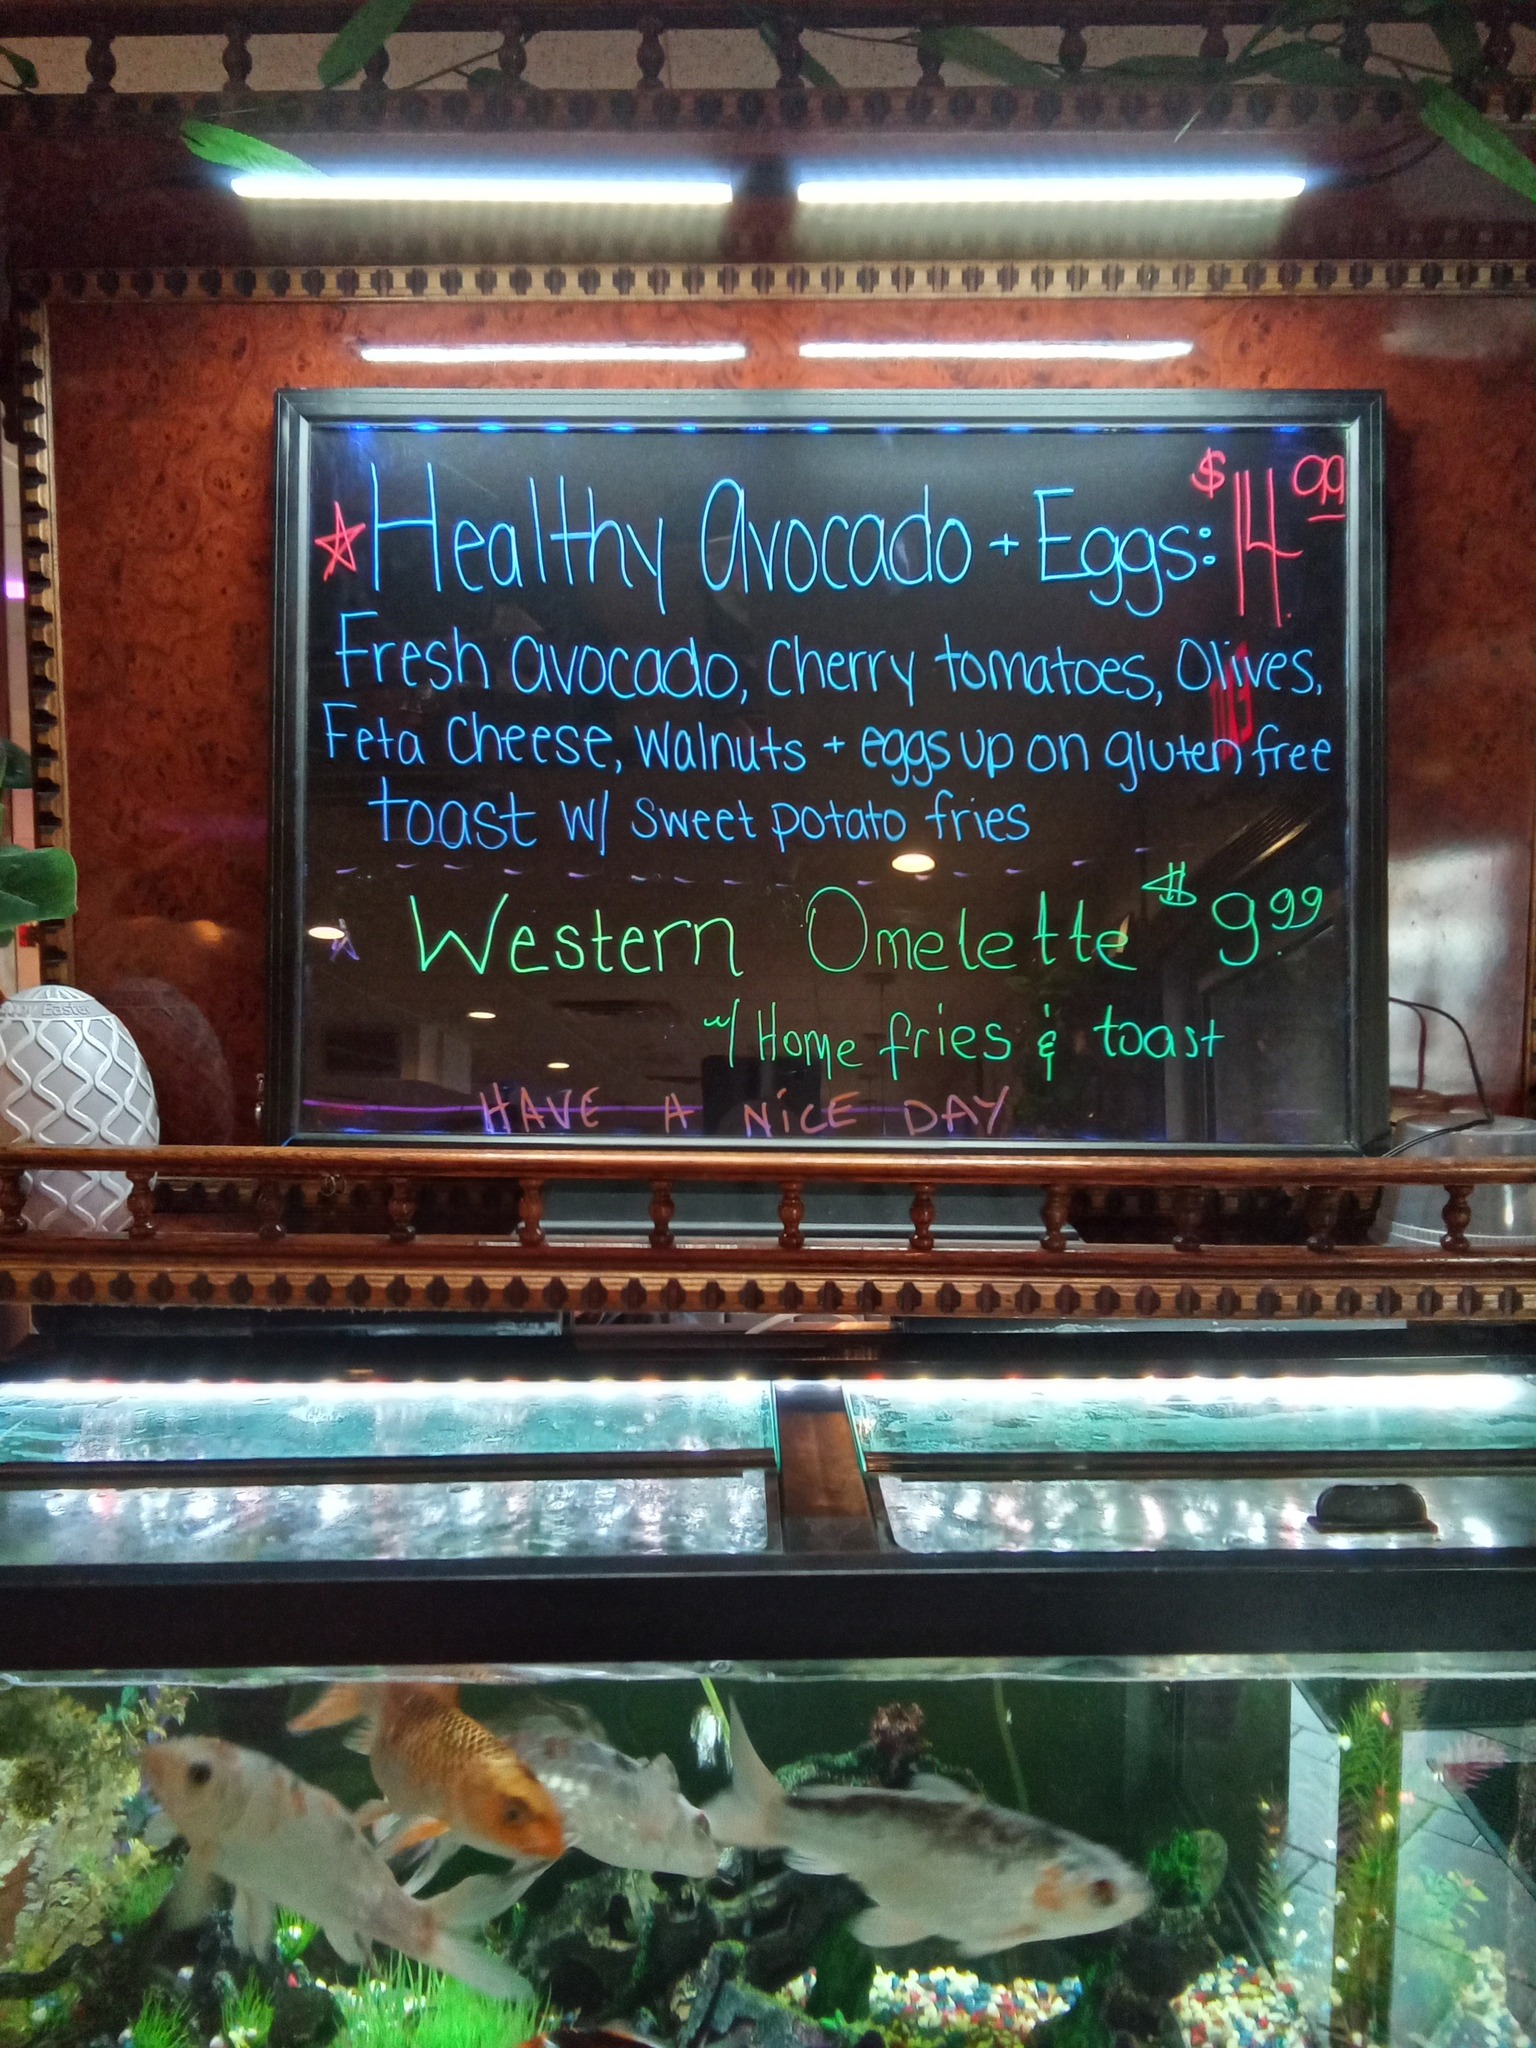 Healthy Avocado + Eggs: $14.99
Fresh avocado, Cherry tomatoes, Olives,
Feta Cheese, Walnuts + eggs up on gluten free
toast w/ sweet potato fries
Western Omelette $9.99
w/ Home fries & toast
HAVE A NiCE DAY
Easter